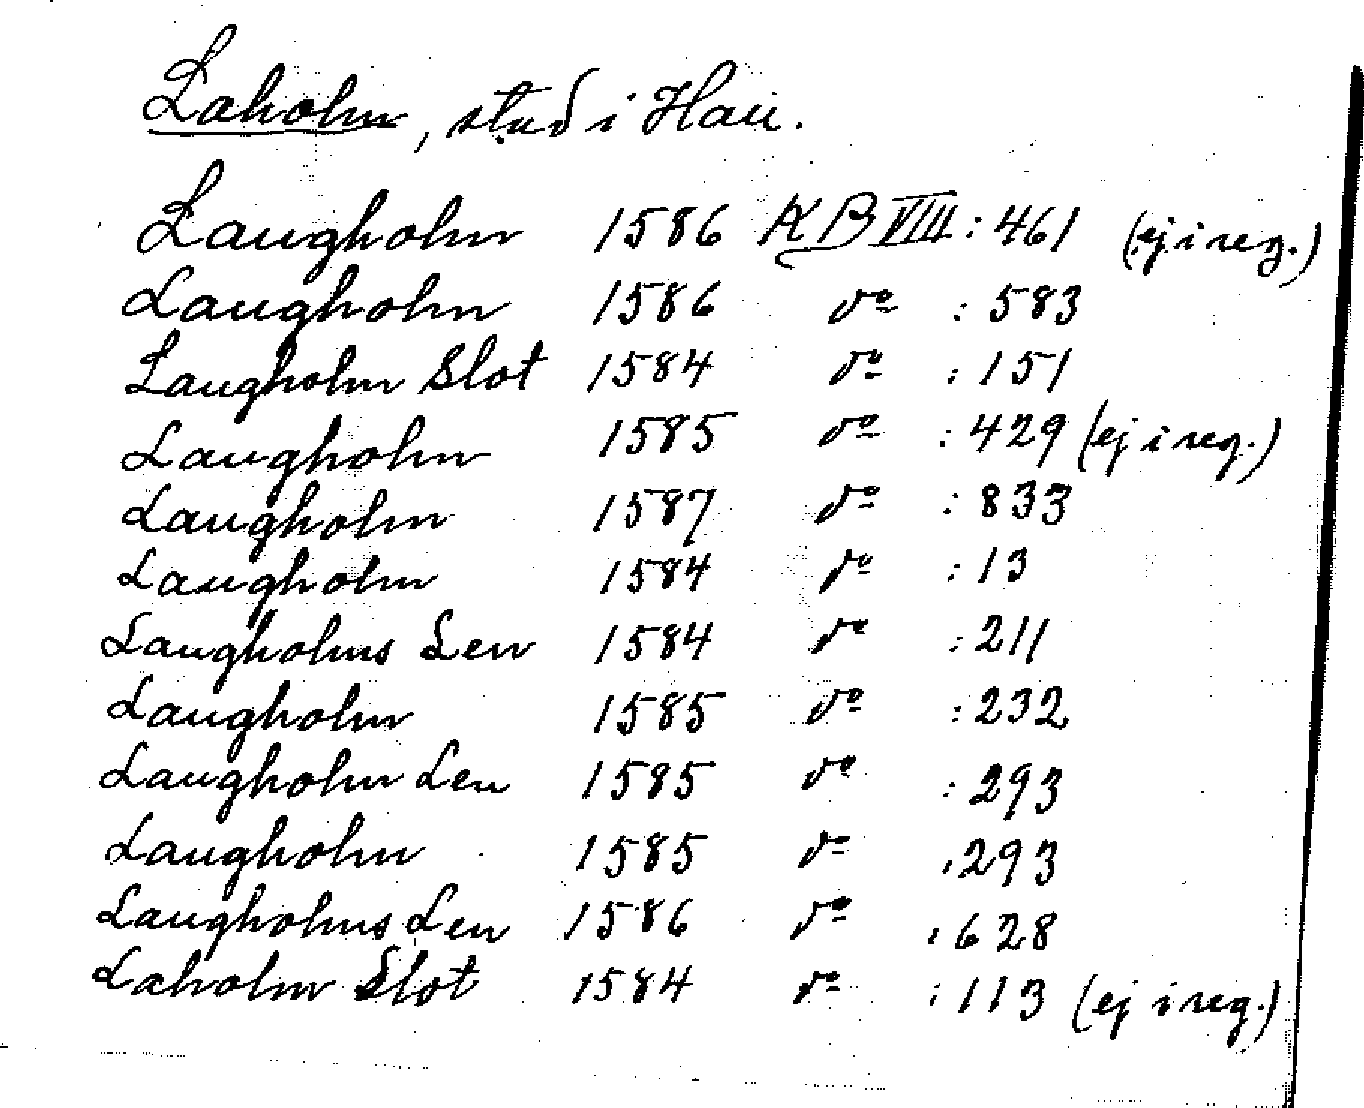 Laholm, stad i Hall.
Laugholm 1586 KB VIII : 461 (ej i reg.)
Laugholm 1586 do : 583
Laugholm Slot 1584 do : 151
Laugholm 1585 do : 429 (ej i reg.)
Laugholm 1587 do : 833
Laugholm 1584 do : 13
Laugholms Len 1584 do : 211
Laugholm 1585 do : 232
Laugholm Len 1585 do : 293
Laugholm 1585 do : 293
Laugholms Len 1586 do : 628
Laholm Slot 1584 do : 113 (ej i reg.)